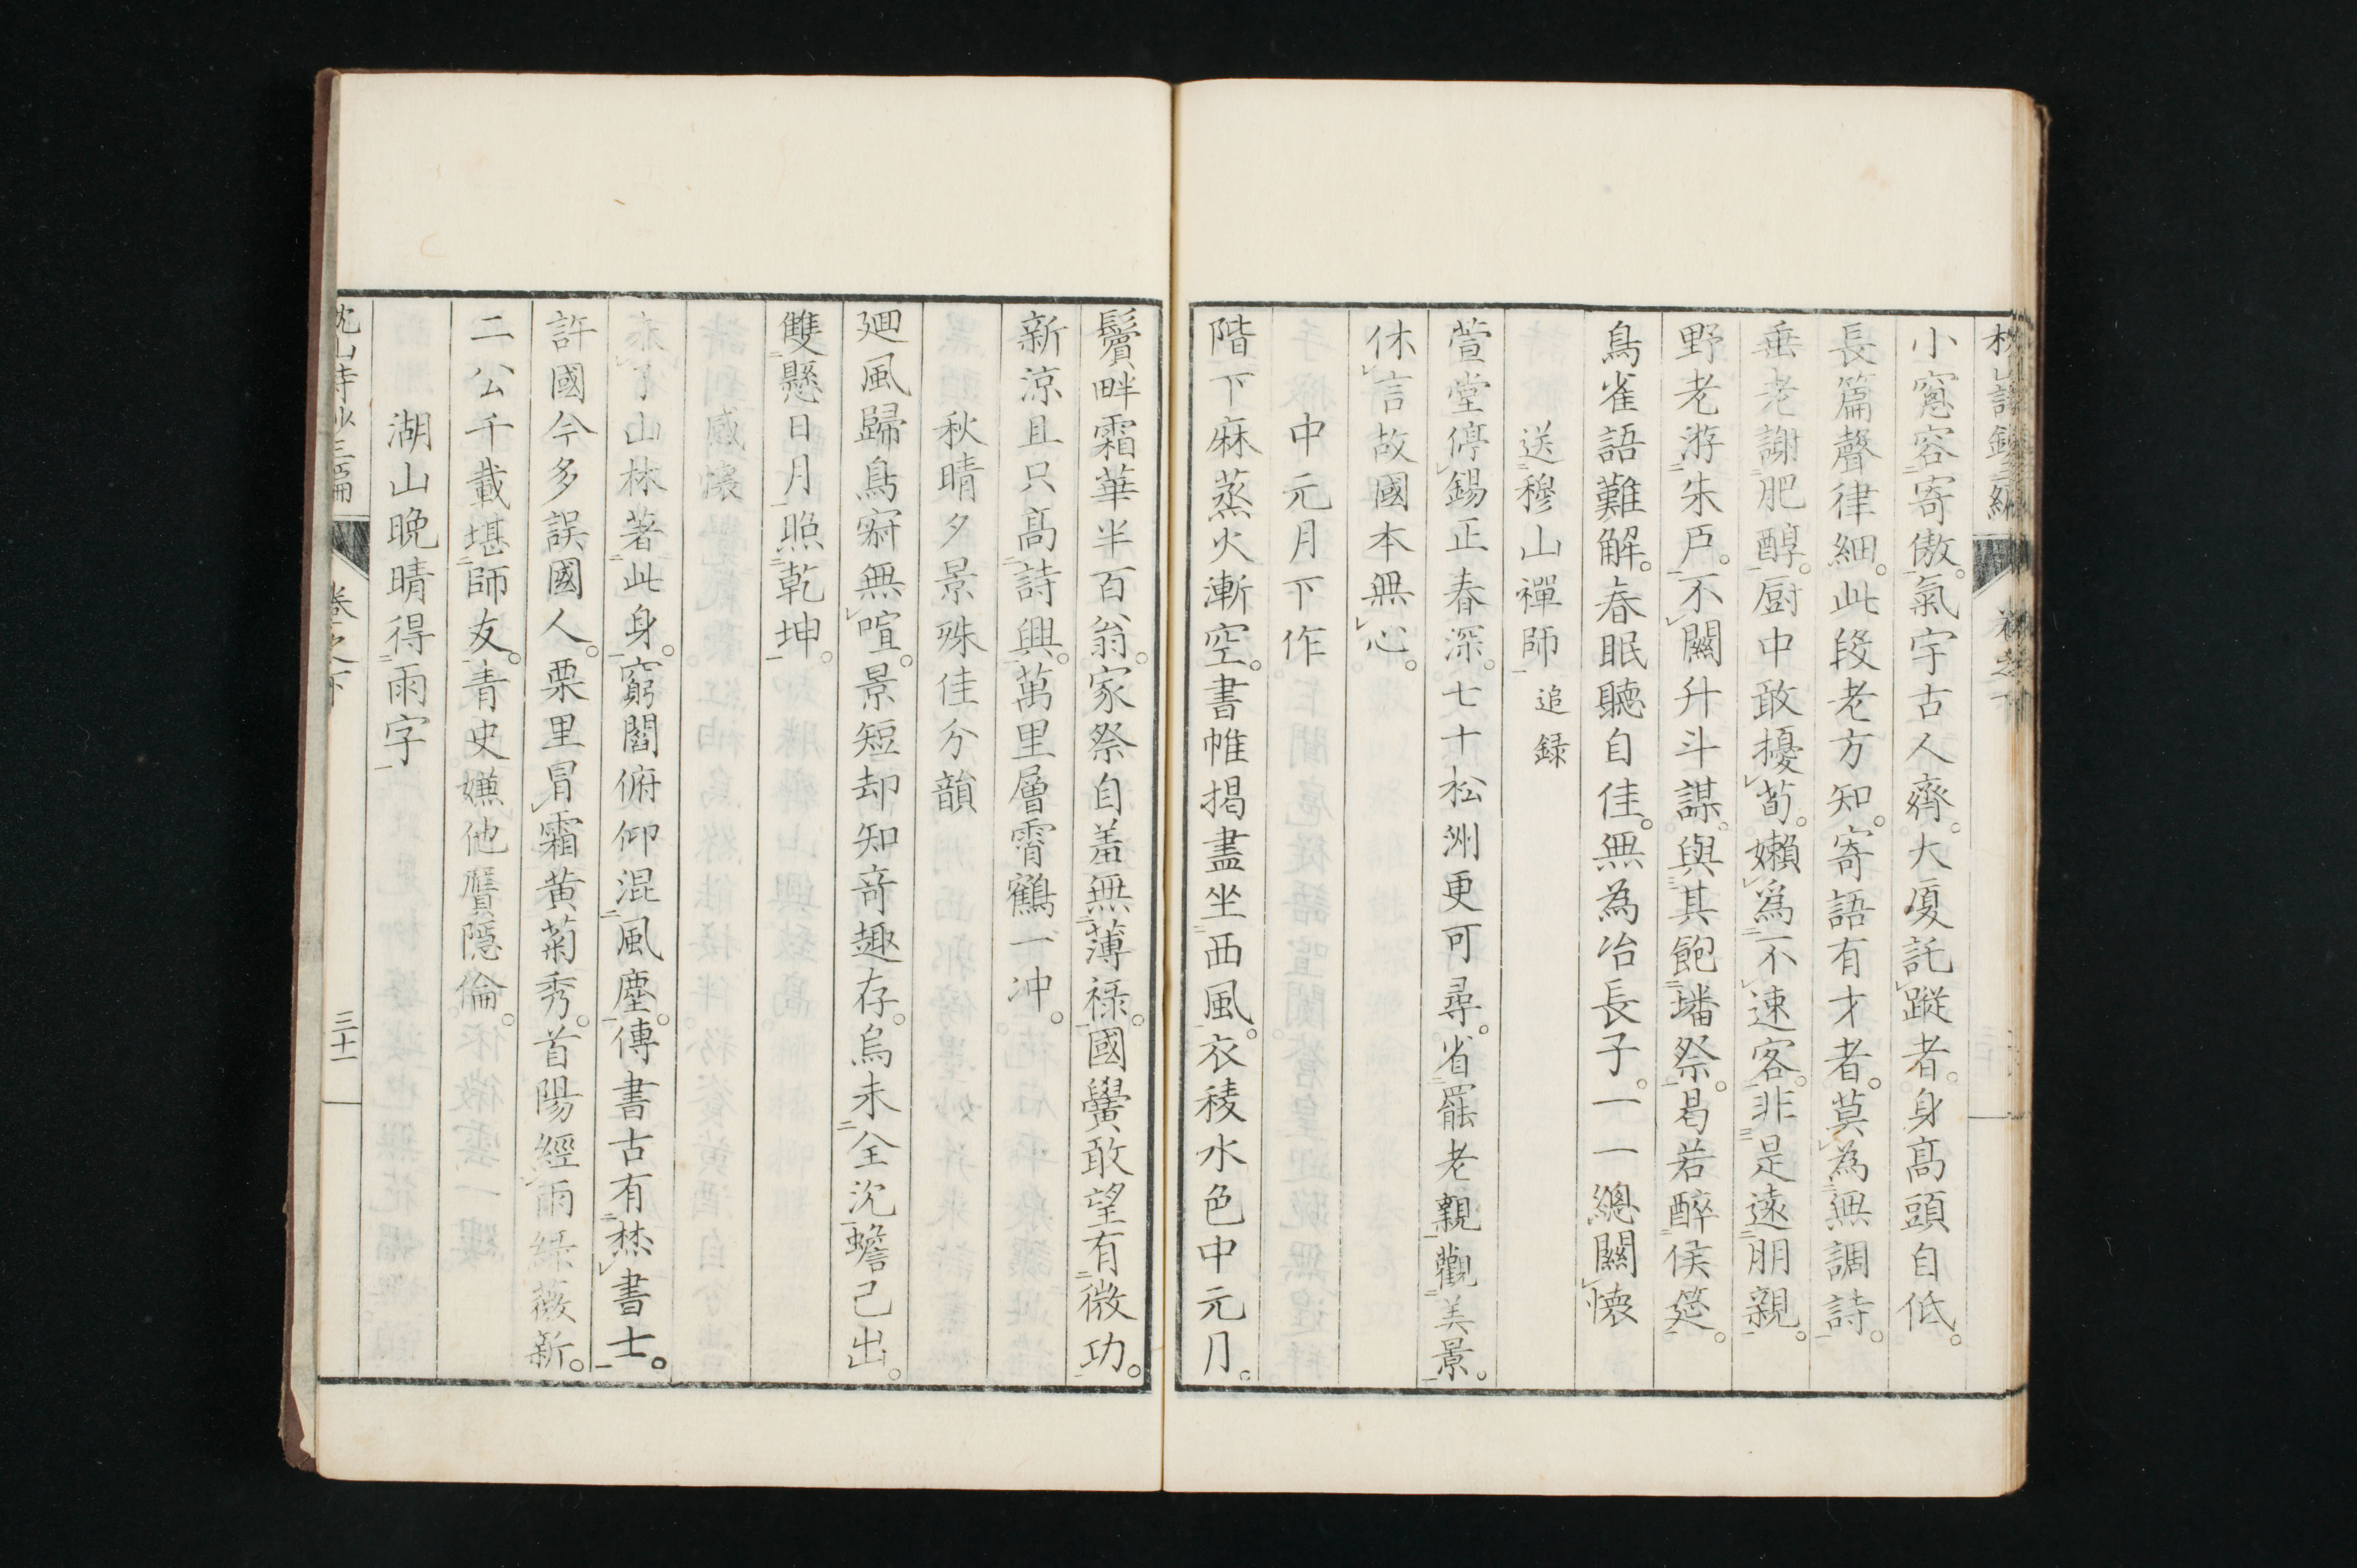 枕山詩鈔三編 卷之下
小窻容寄傲。氣宇古人齊。大厦託蹤者。身髙頭自低。
長篇聲律細。此段老方知。寄語有才者。莫為無調詩。
垂老謝肥醇。厨中敢擾荀。嬾爲不速客。非是遠朋親。
野老游朱戸。不關升斗謀。與其飽墦祭。曷若醉侯筵。
鳥雀語難解。春眠聽自佳。無為冶長子。一一總關懐
送穆山禪師 追録
萱堂停錫正春深。七十松洲更可尋。省罷老親觀美景。
休言故國本無心。
中元月下作
階下麻蒸火漸空。書帷揭盡坐西風。衣稜水色中元月。
鬢畔霜華半百翁。家祭自羞無薄祿。國黌敢望有微功。
新涼且只髙詩興。萬里層霄鶴一冲。
秋晴夕景殊佳分韻
廽風歸鳥寂無喧。景短却知竒趣存。烏未全沈蟾已出。
雙懸日月照乾坤。
感懐
未了山林著此身。窮閻俯仰混風塵。傳書古有焚書士。
許國今多誤國人。栗里冒霜黄菊秀。首陽經雨綠薇新。
二公千載堪師友。青史嫌他贋隱倫。
湖山晩晴得雨字
枕山詩鈔三編 卷之下 三十一